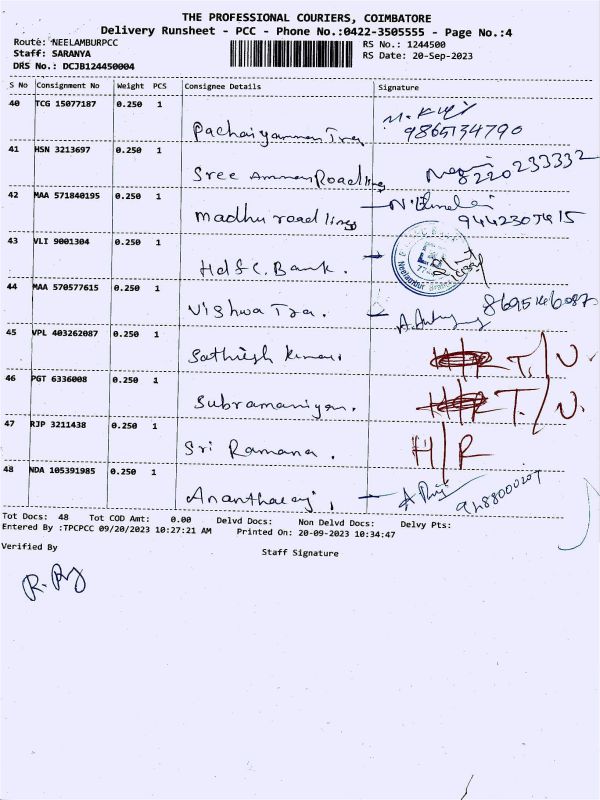 THE PROFESSIONAL COURIERS, COIMBATORE
Delivery Runsheet - PCC - Phone No.:0422-3505555 - Page No.:4
Route: NEELAMBURPCC RS No.: 1244500
Staff: SARANYA RS Date: 20-Sep-2023
DRS No.: DCJB124450004
S No Consignment No Weight PCS Consignee Details Signature
40 TCG 15077187 0.250 1
Pachaiyamman Tra 9865134790
41 HSN 3213697 0.250 1
Sree Amman Road lines 8220233332
42 MAA 571840195 0.250 1
Madhu road lines 9442307415
43 VLI 9001304 0.250 1
Hdfc. Bank.
44 MAA 570577615 0.250 1
Vishwa Tra. 8695146087
45 VPL 403262087 0.250 1
Sathiesh Kumar. T./U.
46 PGT 6336008 0.250 1
Subramaniyan. T./U.
47 RJP 3211438 0.250 1
Sri Ramana. H/R
48 NDA 105391985 0.250 1
Anantharaj,
Tot Docs: 48 Tot COD Amt: 0.00 Delvd Docs: Non Delvd Docs: Delvy Pts:
Entered By :TPCPCC 09/20/2023 10:27:21 AM Printed On: 20-09-2023 10:34:47
Verified By Staff Signature